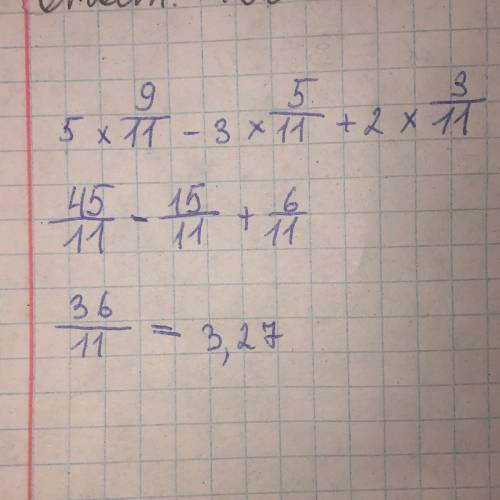 Ответ:
5 × 9/11 - 3 × 5/11 + 2 × 3/11
45/11 - 15/11 + 6/11
36/11 = 3,27